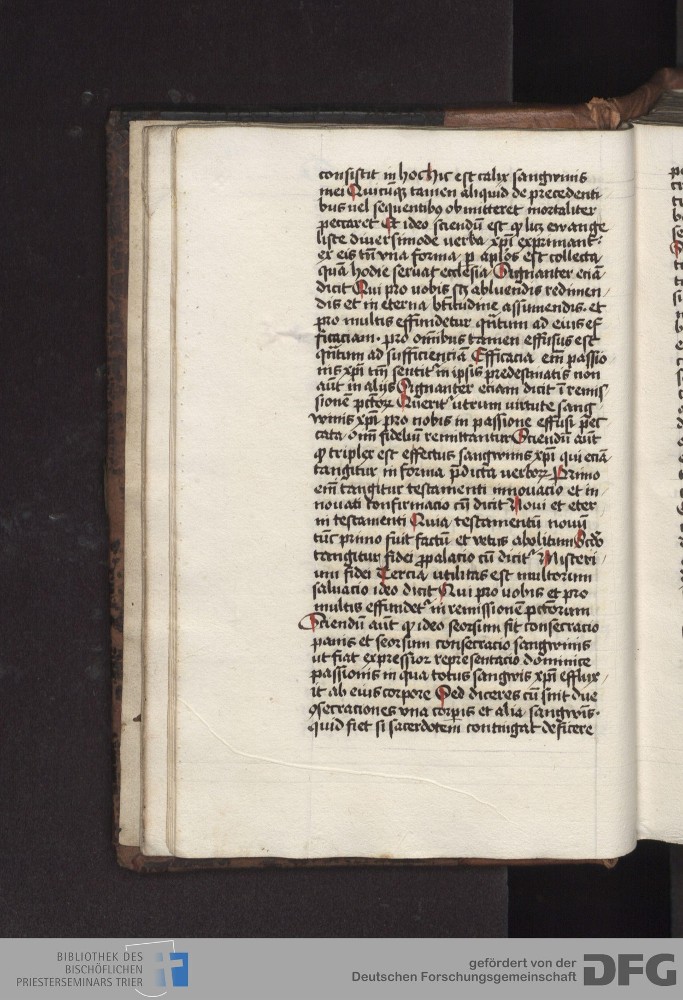 consistit in hoc hic est calix sangwinis
mei Quicūq; tamen aliquid de precedenti
bus uel sequentibꝯ obmitteret mortaliter
peccaret Et ideo sciendū est ꝙ licꝫ ewange
liste diuersimode verba xp̄i exprimant
ex eis tn̄ vna forma ꝑ aplōs est collecta
quā hodie seruat ecclesia Signanter eciā
dicit Qui pro uobis scꝫ abluendis redimen
dis et in eterna bt̄itudine assumendis et
pro multis effundetur qn̄tum ad eius ef
ficaciam pro om̄ibus tamen effusus est
qn̄tum ad sufficienciā Efficacia em̄ passio
nis xp̄i tm̄ sentit' in ipsis predestinatis non
aūt in alijs Signanter eciam dicit ī remis
sionē pctōꝝ Querit' utrum virtute sang
winis xp̄i pro nobis in passione effusi pec
cata om̄m fidelium remittantur Sciendū aūt
ꝙ triplex est effectus sangwinis xp̄i qui eciā
tangitur in forma p̄dicta verboꝝ Primo
em̄ tangitur testamenti innouacio et in
nouati confirmacio cū dicit Noui et eter
ni testamenti Quia testamentū nouū
tūc primo fuit factū et vetus abolitum Scdo
tangitur fidei ꝓpalacio cū dicit' Misteri
um fidei Tercia utilitas est multorum
saluacio ideo dicit Qui pro uobis et pro
multis effundet' in remissionē pctōrum
Sciendū aūt ꝙ ideo seorsum fit consecracio
panis et seorsum consecracio sangwinis
ut fiat expressior representacio dominice
passionis in qua totus sangwis xp̄i efflux
it ab eius corpore Sed diceres cū sint due
ꝯsecraciones vna corpis et alia sangwis
quid fiet si sacerdotem contingat deficere
BIBLIOTHEK DES
BISCHÖFLICHEN
PRIESTERSEMINARS TRIER
gefördert von der
Deutschen Forschungsgemeinschaft
DFG